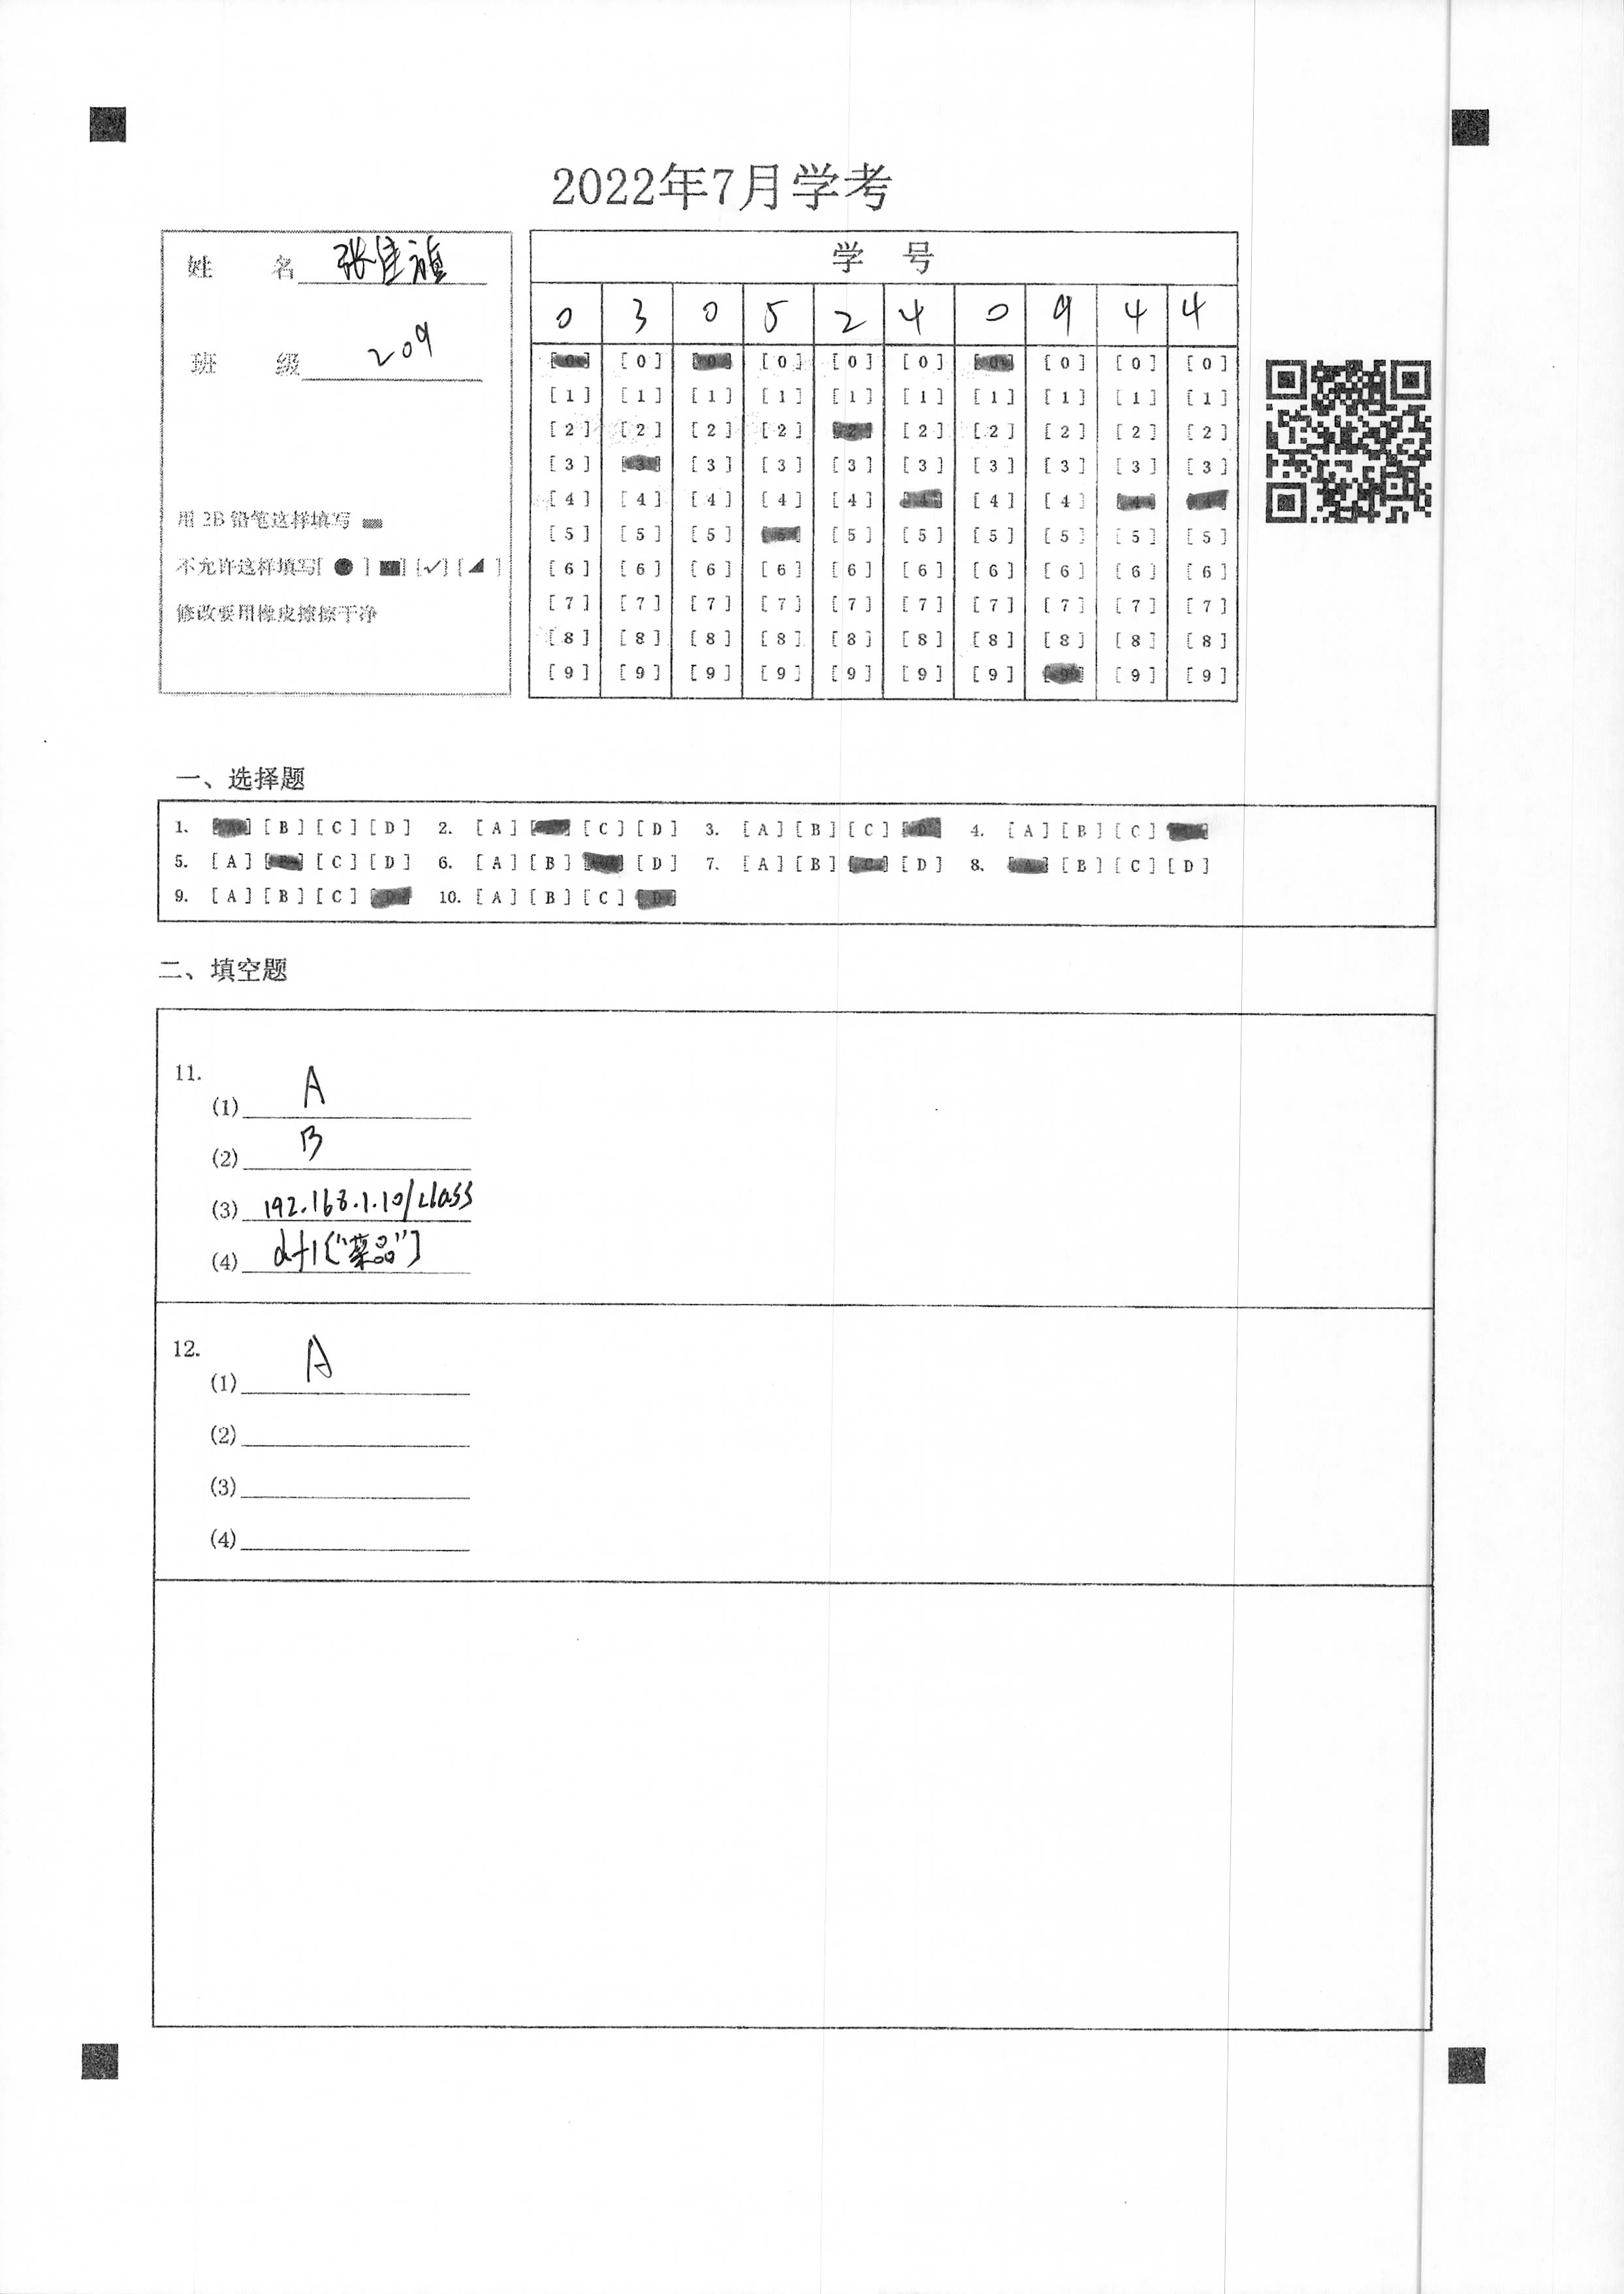 2022年7月学考
姓 名 张佳
班 级 209
用 2B 铅笔这样填写
不允许这样填写[ ● ] [■] [✓] [◢ ]
修改要用橡皮擦擦干净
学 号
0 3 0 5 2 4 0 9 4 4
[0] [0] [0] [0] [0] [0] [0] [0] [0] [0]
[1] [1] [1] [1] [1] [1] [1] [1] [1] [1]
[2] [2] [2] [2] [2] [2] [2] [2] [2] [2]
[3] [3] [3] [3] [3] [3] [3] [3] [3] [3]
[4] [4] [4] [4] [4] [4] [4] [4] [4] [4]
[5] [5] [5] [5] [5] [5] [5] [5] [5] [5]
[6] [6] [6] [6] [6] [6] [6] [6] [6] [6]
[7] [7] [7] [7] [7] [7] [7] [7] [7] [7]
[8] [8] [8] [8] [8] [8] [8] [8] [8] [8]
[9] [9] [9] [9] [9] [9] [9] [9] [9] [9]
一、选择题
1. [A] [B] [C] [D] 2. [A] [B] [C] [D] 3. [A] [B] [C] [D] 4. [A] [B] [C] [D]
5. [A] [B] [C] [D] 6. [A] [B] [C] [D] 7. [A] [B] [C] [D] 8. [A] [B] [C] [D]
9. [A] [B] [C] [D] 10. [A] [B] [C] [D]
二、填空题
11.
(1) A
(2) B
(3) 192.168.1.10/class
(4) df1["菜品"]
12.
(1) A
(2)
(3)
(4)